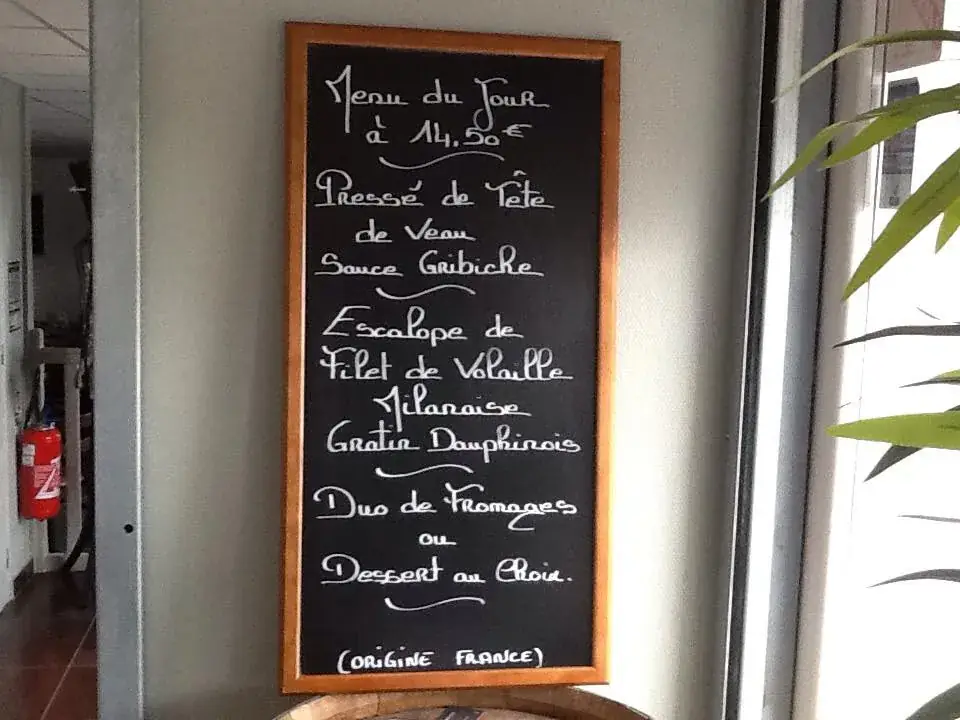 Menu du Jour
à 14,50€
Pressé de Tête
de Veau
Sauce Gribiche
Escalope de
Filet de Volaille
Milanaise
Gratin Dauphinois
Duo de Fromages
ou
Dessert au Choix.
(ORIGINE FRANCE)